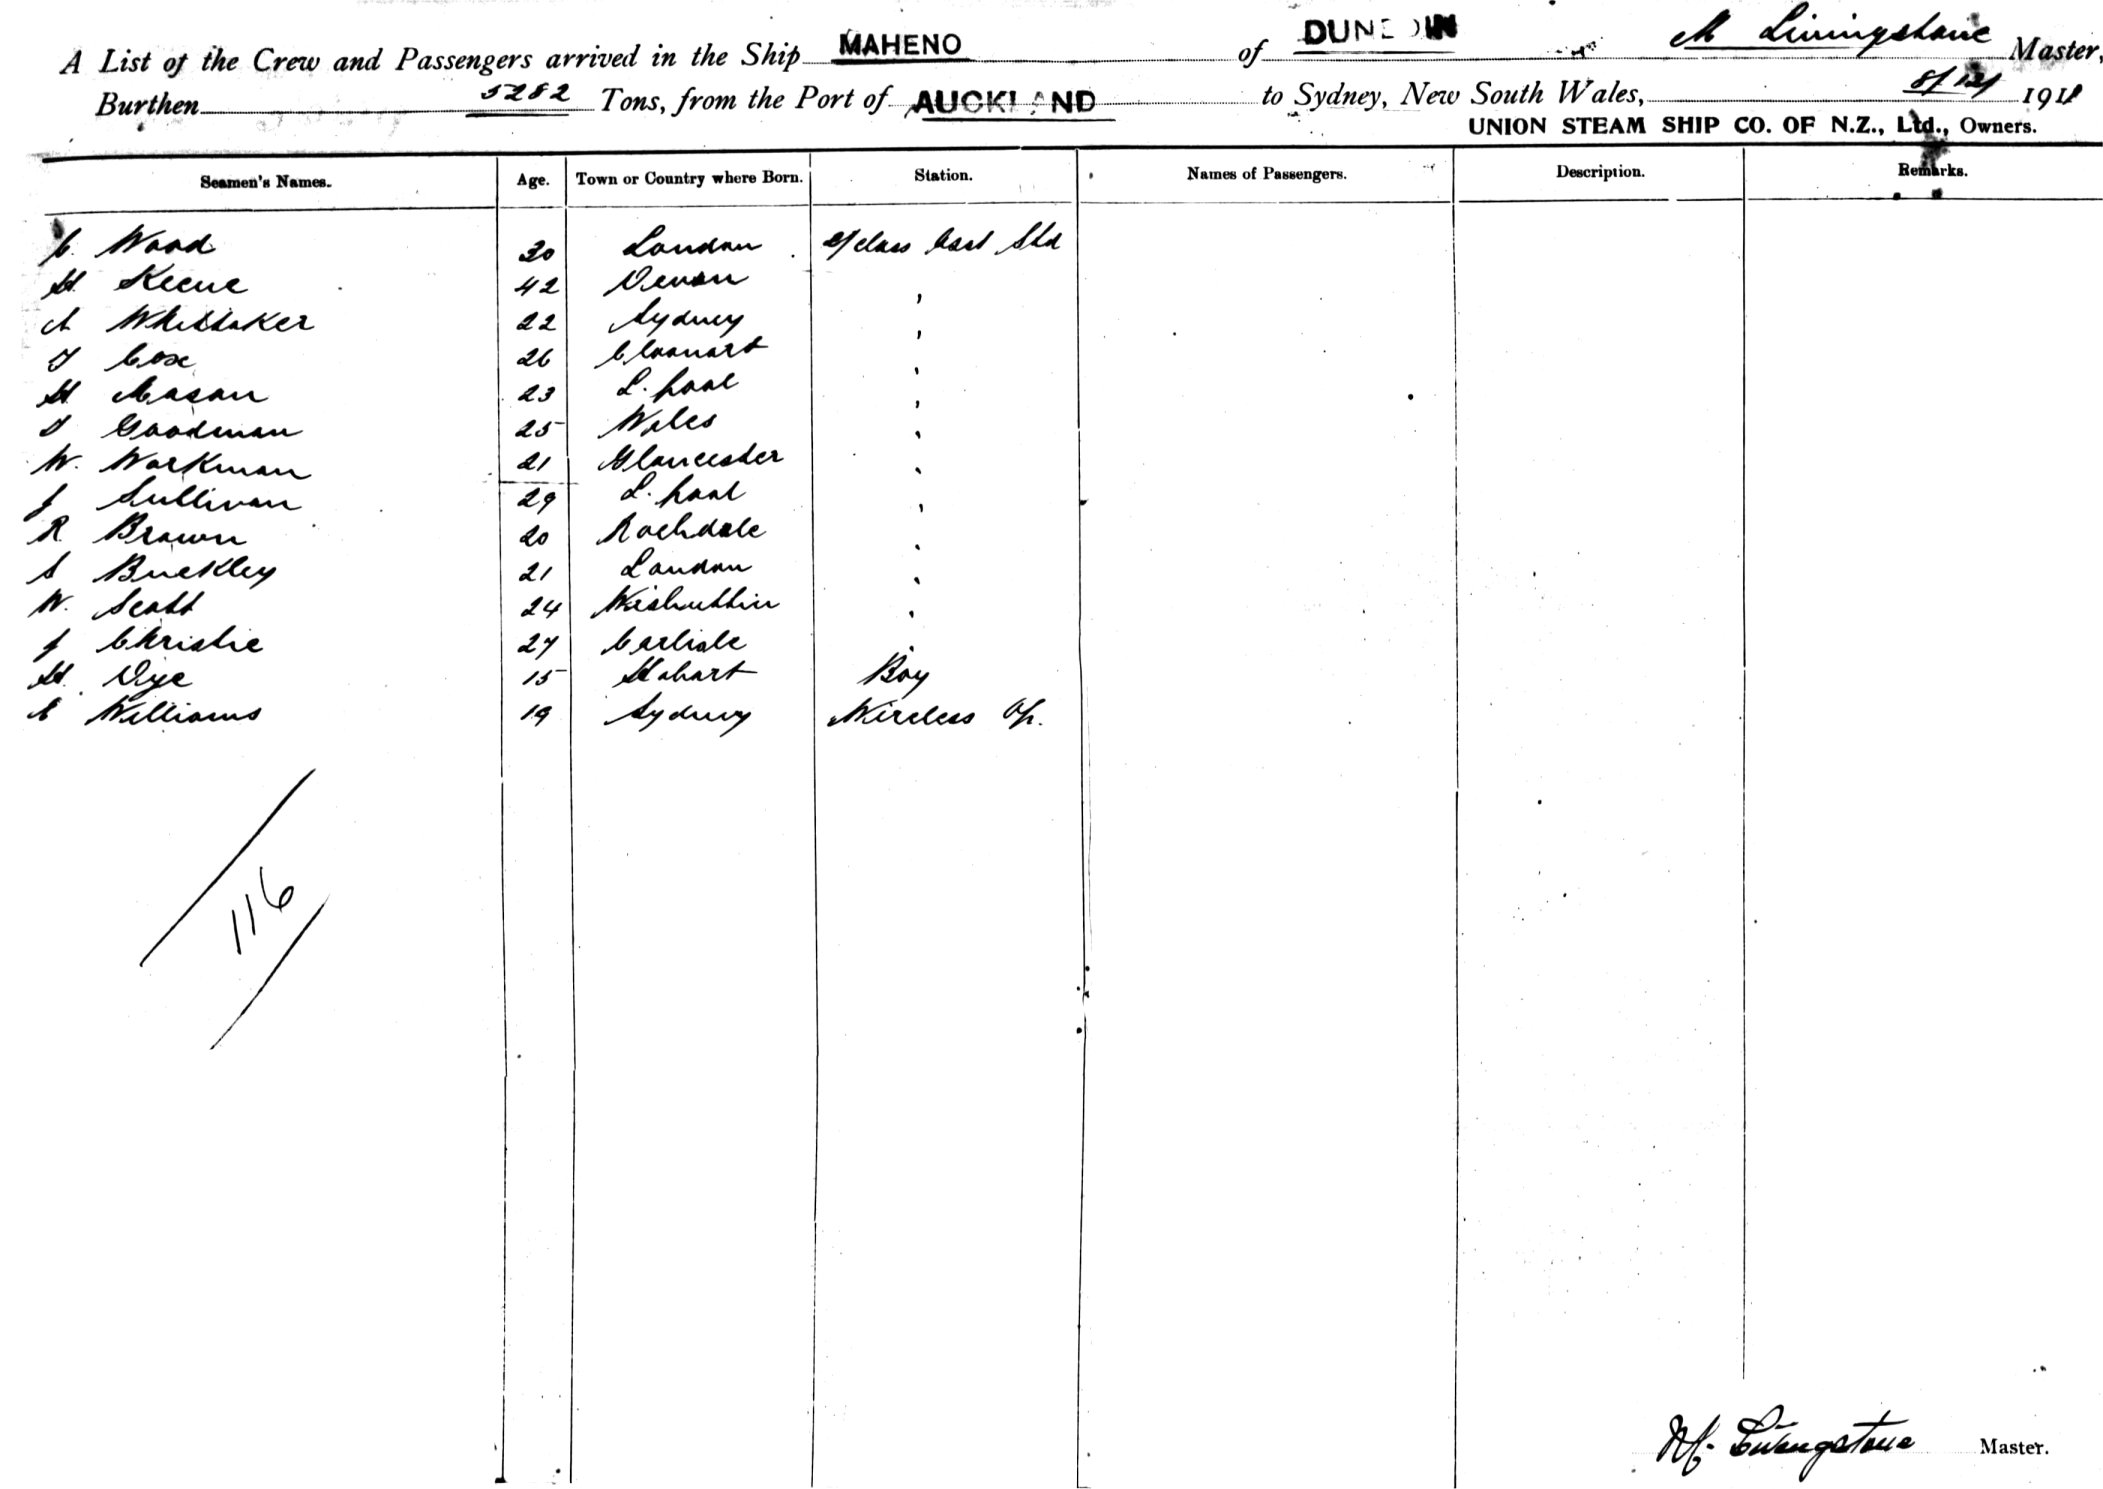 A List of the Crew and Passengers arrived in the Ship MAHENO of DUNEDIN M Livingstone Master,
Burthen 5282 Tons, from the Port of AUCKLAND to Sydney, New South Wales, 8/12/ 1911
UNION STEAM SHIP CO. OF N.Z., Ltd., Owners.
Seamen's Names. Age. Town or Country where Born. Station. Names of Passengers. Description. Remarks.
C. Wood 30 London 2/class Std
H. Keene 42 Devon "
A Whittaker 22 Sydney "
T Cox 26 "
H. Mason 23 L.pool "
T Goodman 25 Wales "
W. Workman 21 Gloucester "
J Sullivan 29 L.pool "
R Brown 20 Rochdale "
S Buckley 21 London "
W. Scott 24 "
J Christie 27 Carlisle "
H. Dye 15 Hobart Boy
E Williams 19 Sydney Wireless Op.
116
M. Livingstone Master.